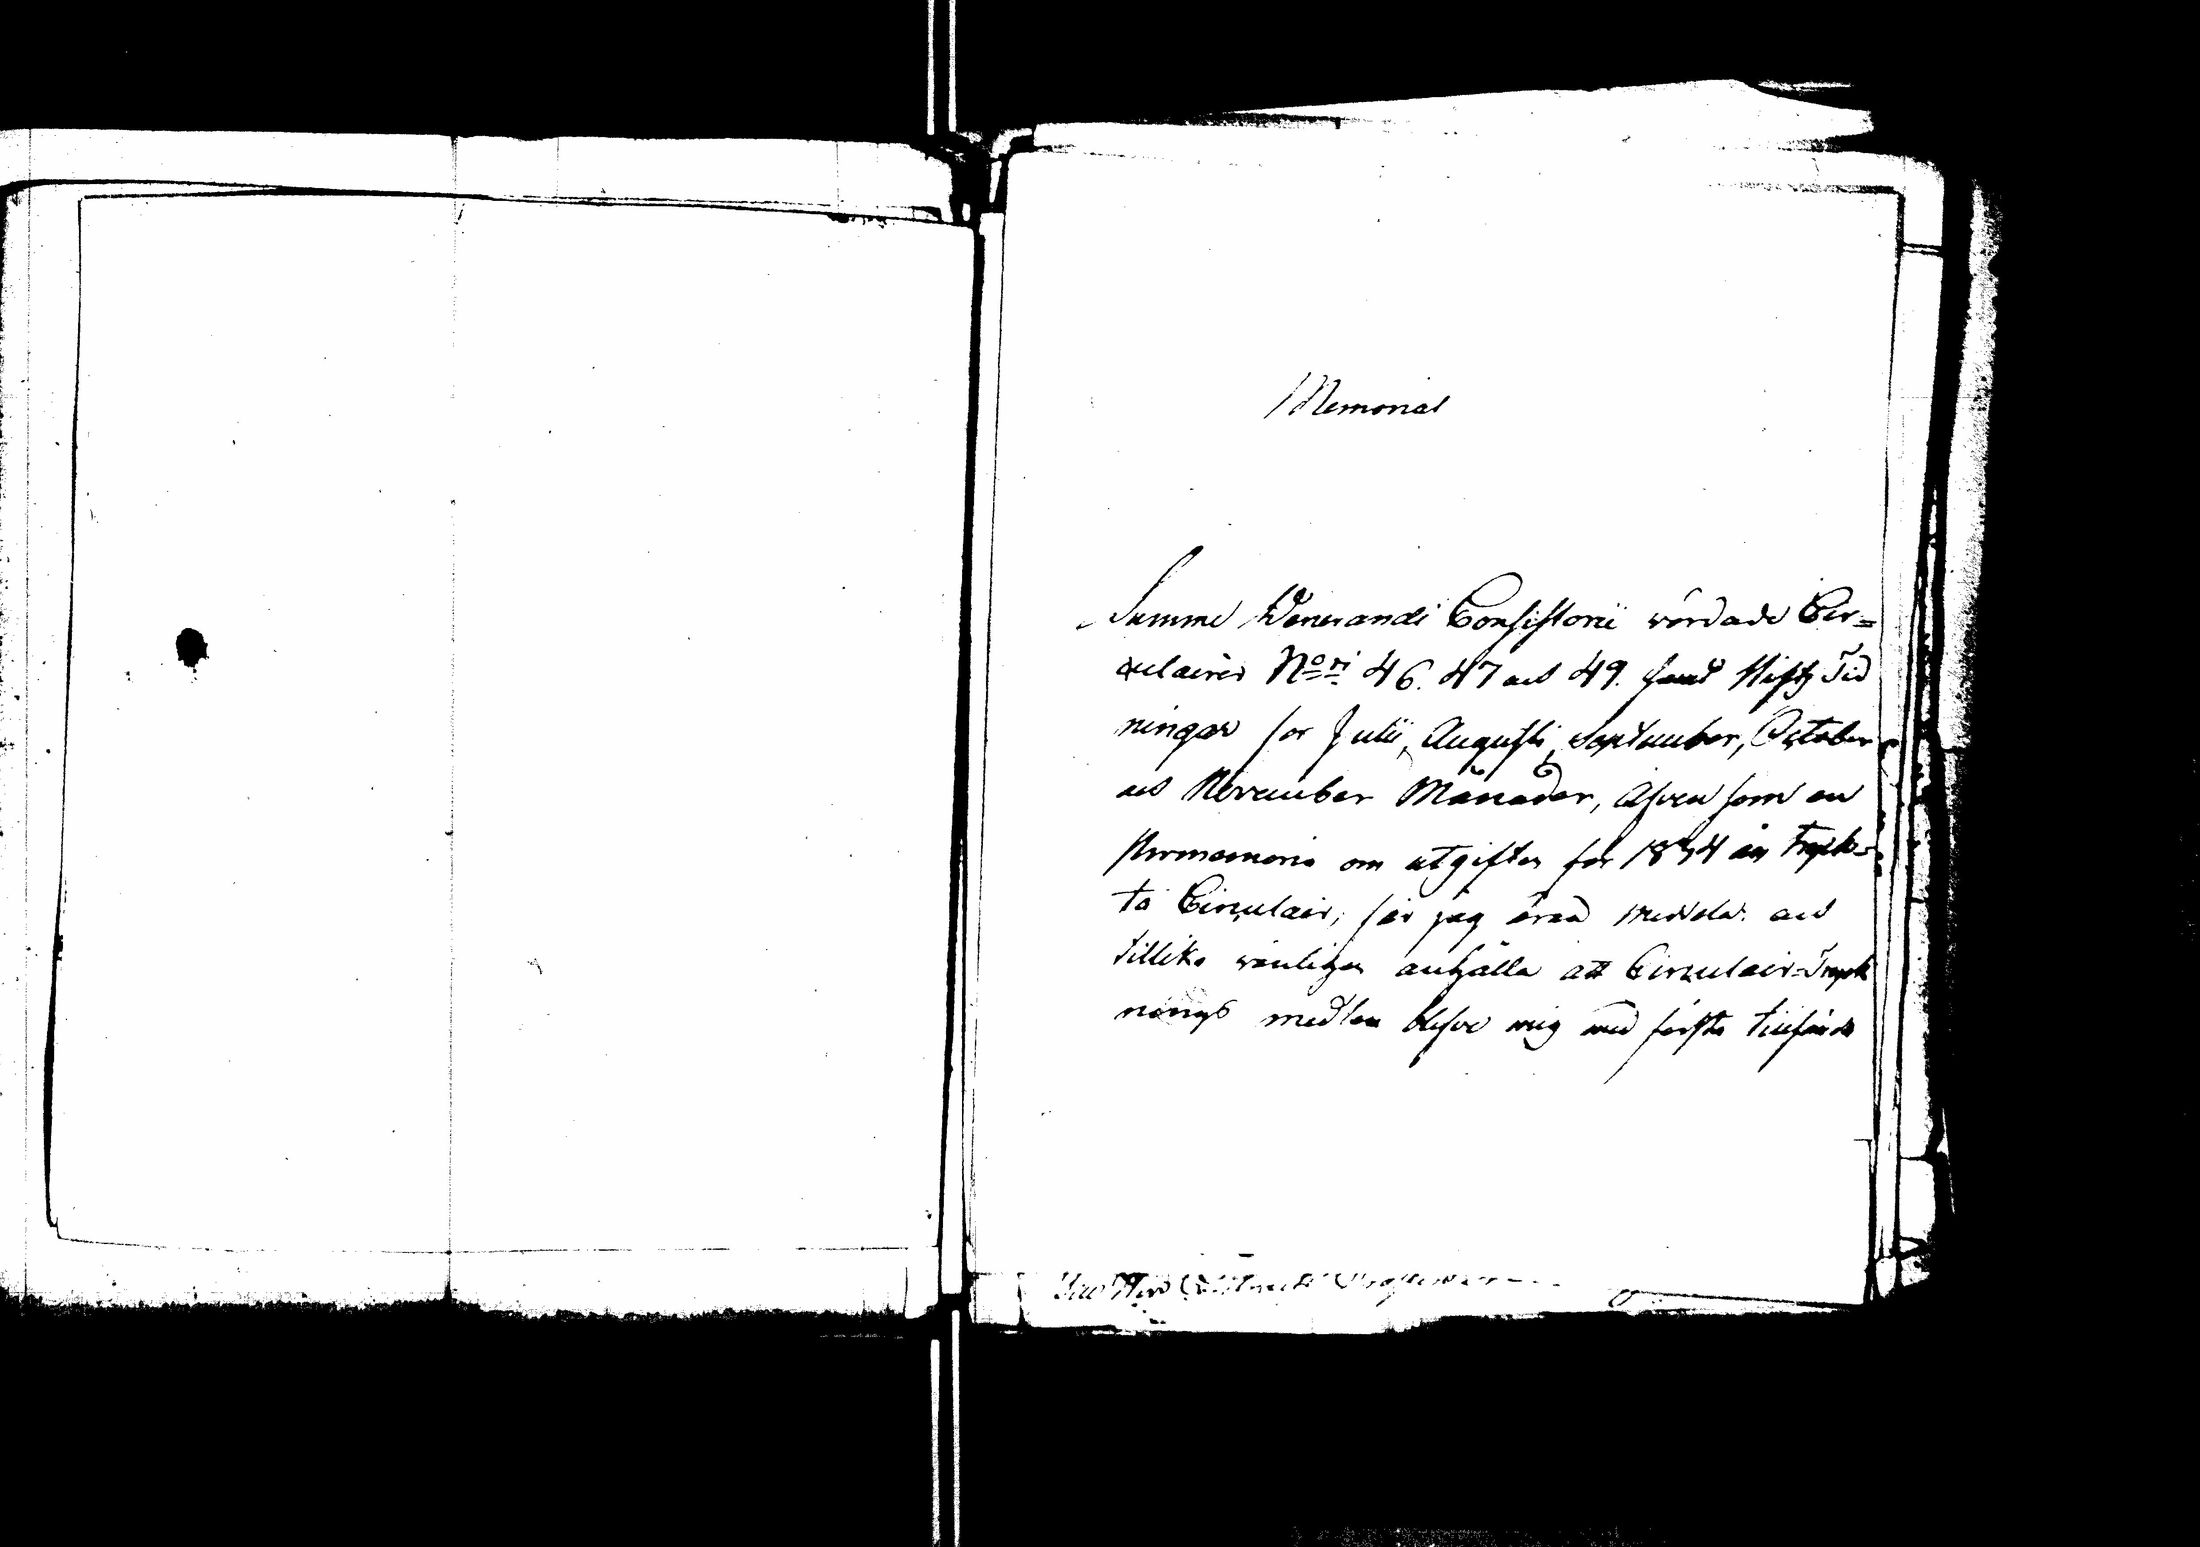 Memorial
Summe Venerandi Consistorii vördade Cir=
culairer N:ri 46. 47 och 49. samt Stifts Tid
ningar för Julii, Augusti, September, October
och November Månader, äfven som en
Promemoria om utgifter för 1834 års tryck=
ta Circulair, får jag äran meddela och
tillika vänligen anhålla att Circulair=Tryck
nings medlen blefve mig med första tillsände